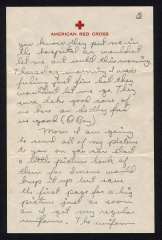 2
AMERICAN RED CROSS
you know they put me in
the hospital an wouldnt
let me out until this morning
Thursday morning I was
feeling just fine but they
wouldn't let me go. They
sure take good care of
us here an Billy feels
good (Oh Boy)
Mom I am going
to send all of my pictures
to you an you can start
a little picture book of
them for I sure would
keep it up but save
the first page for a big
picture just as soon
as I get my regular
uniform. The uniform